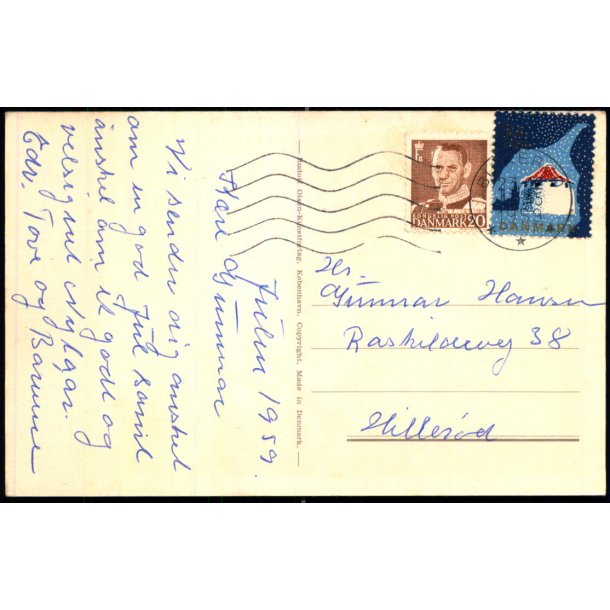 Julen 1959.
Kære Gunnar
Vi sender dig ønsket
om en god Jul samt
ønsket om et godt og
velsignet Nytaar.
Edv. Tove og Børnene
Rudolf Olsens Kunstforlag. København. Copyright. Made in Denmark.
KONGELIG POST
DANMARK 20
DANMARK
Hr.
Gunnar Hansen
Roskildevej 38
Hillerød